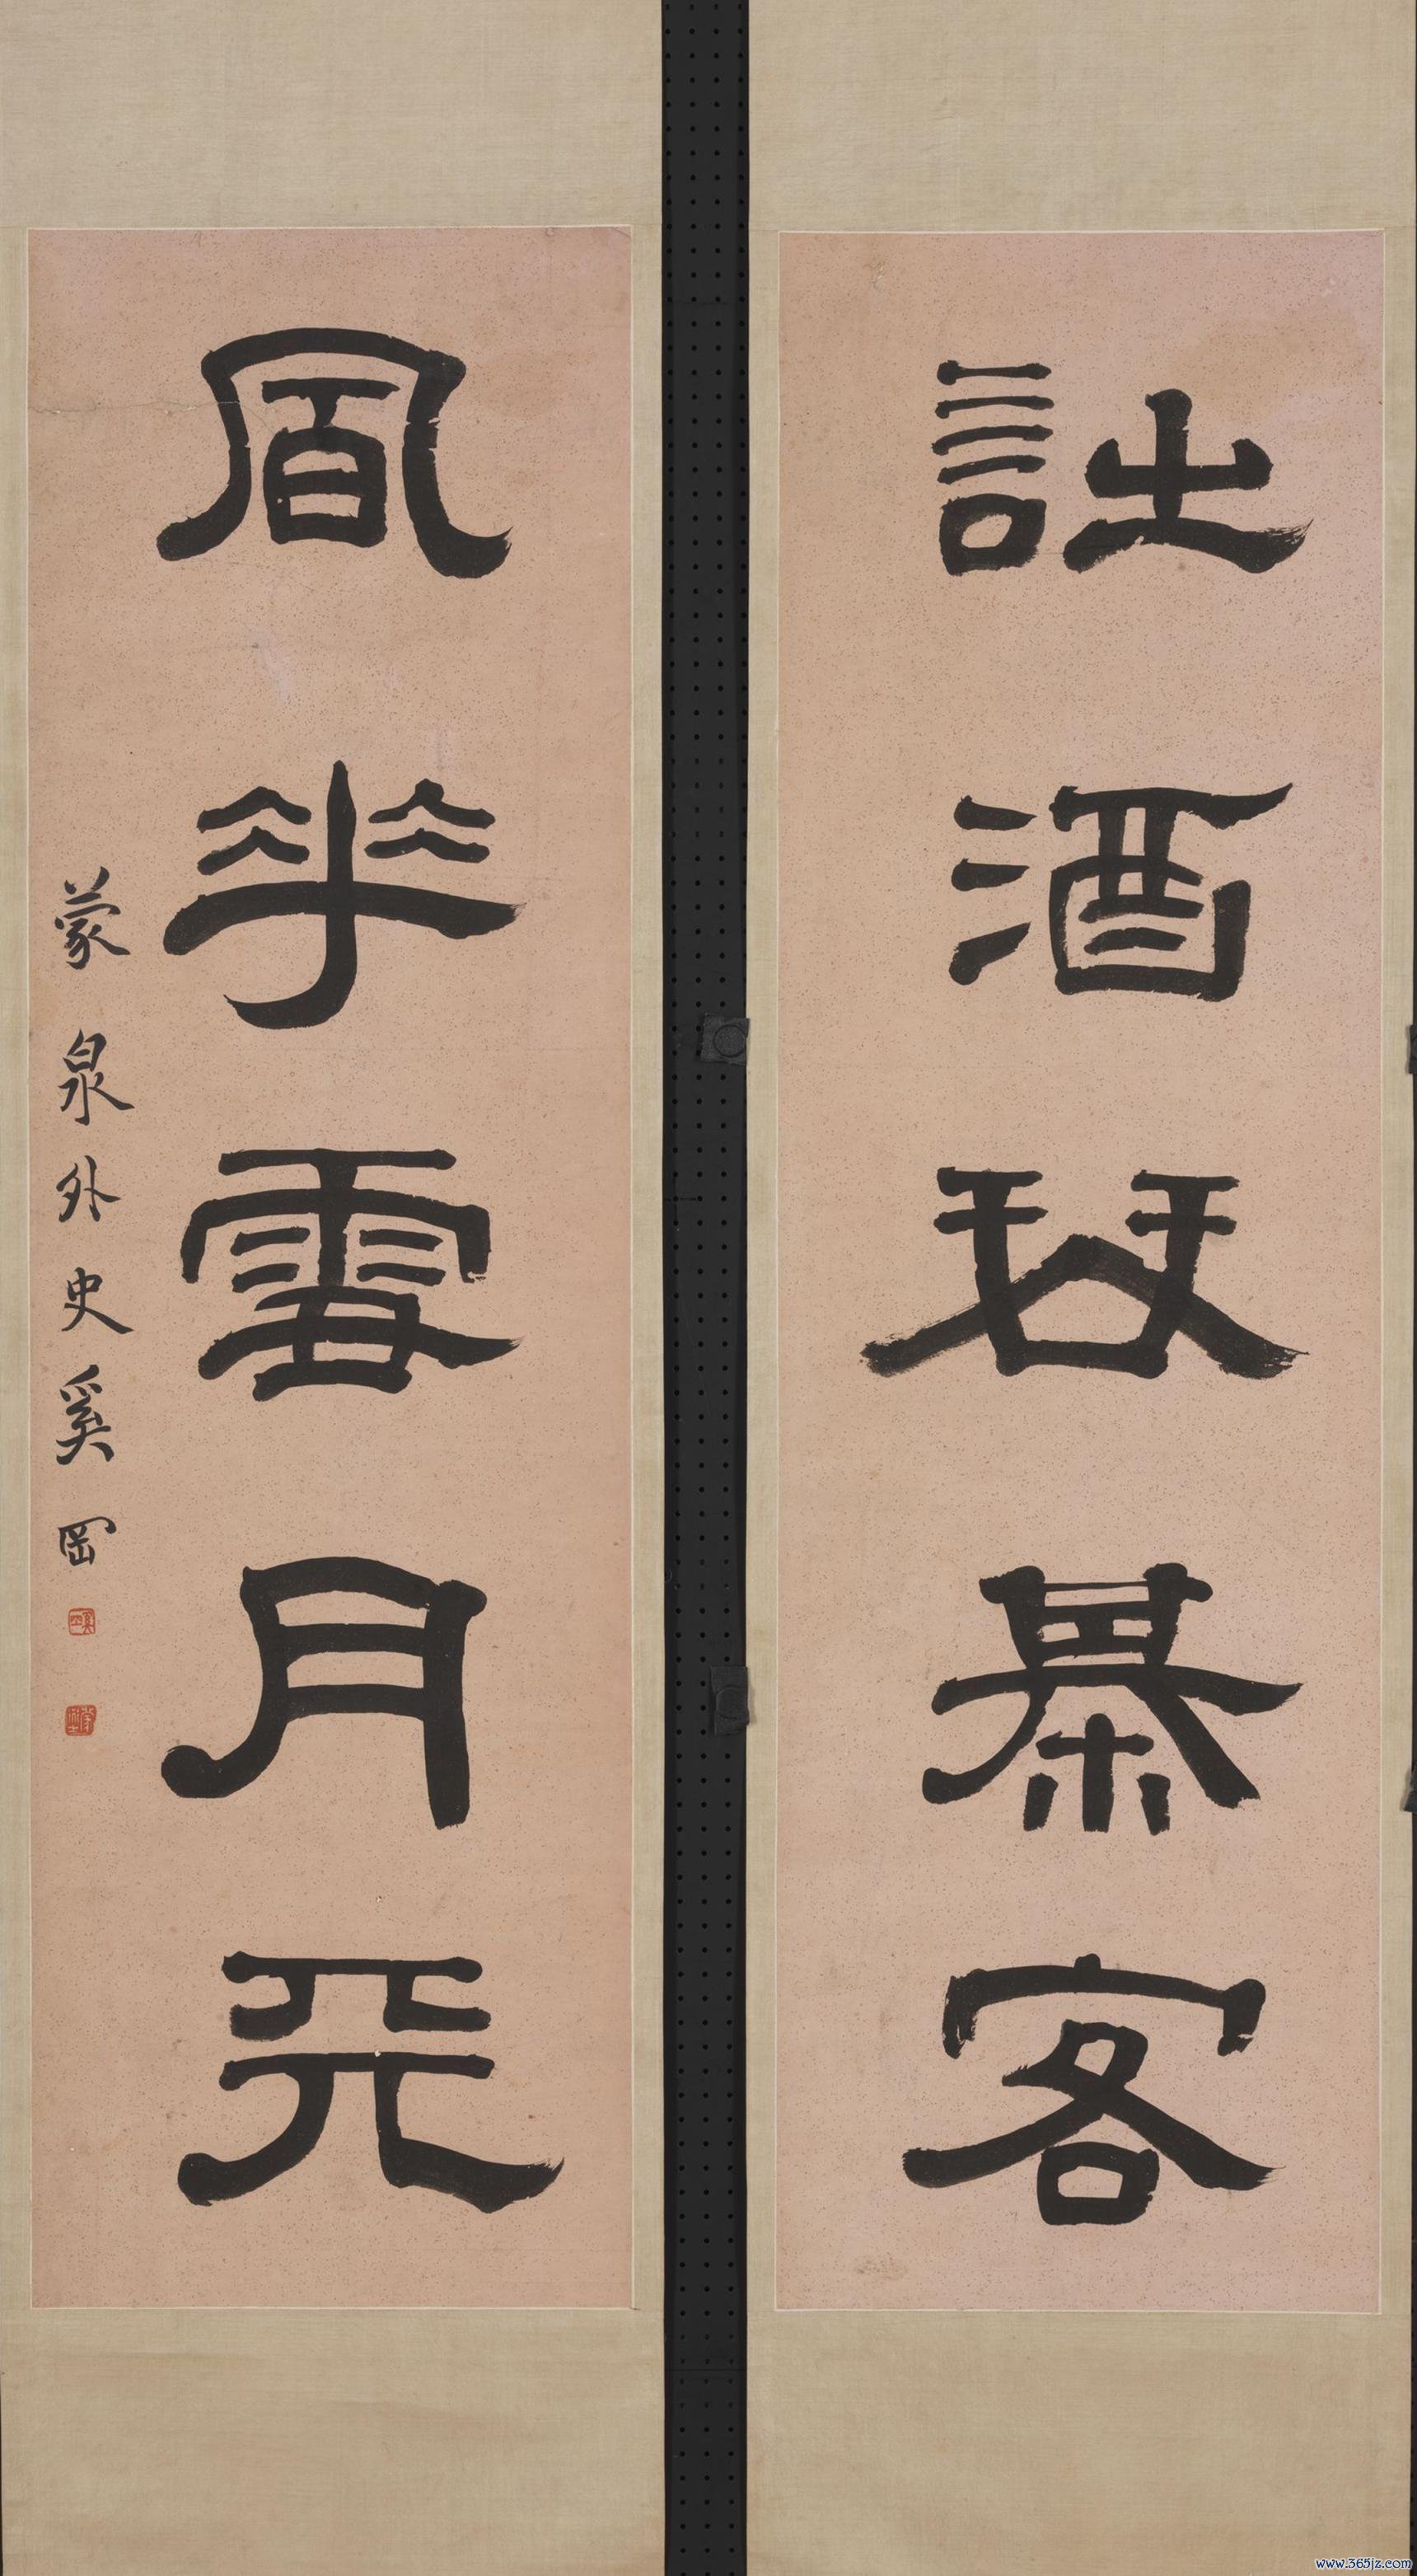 詩酒琴棊客
風花雪月天
蒙泉外史奚岡
www.365jz.com